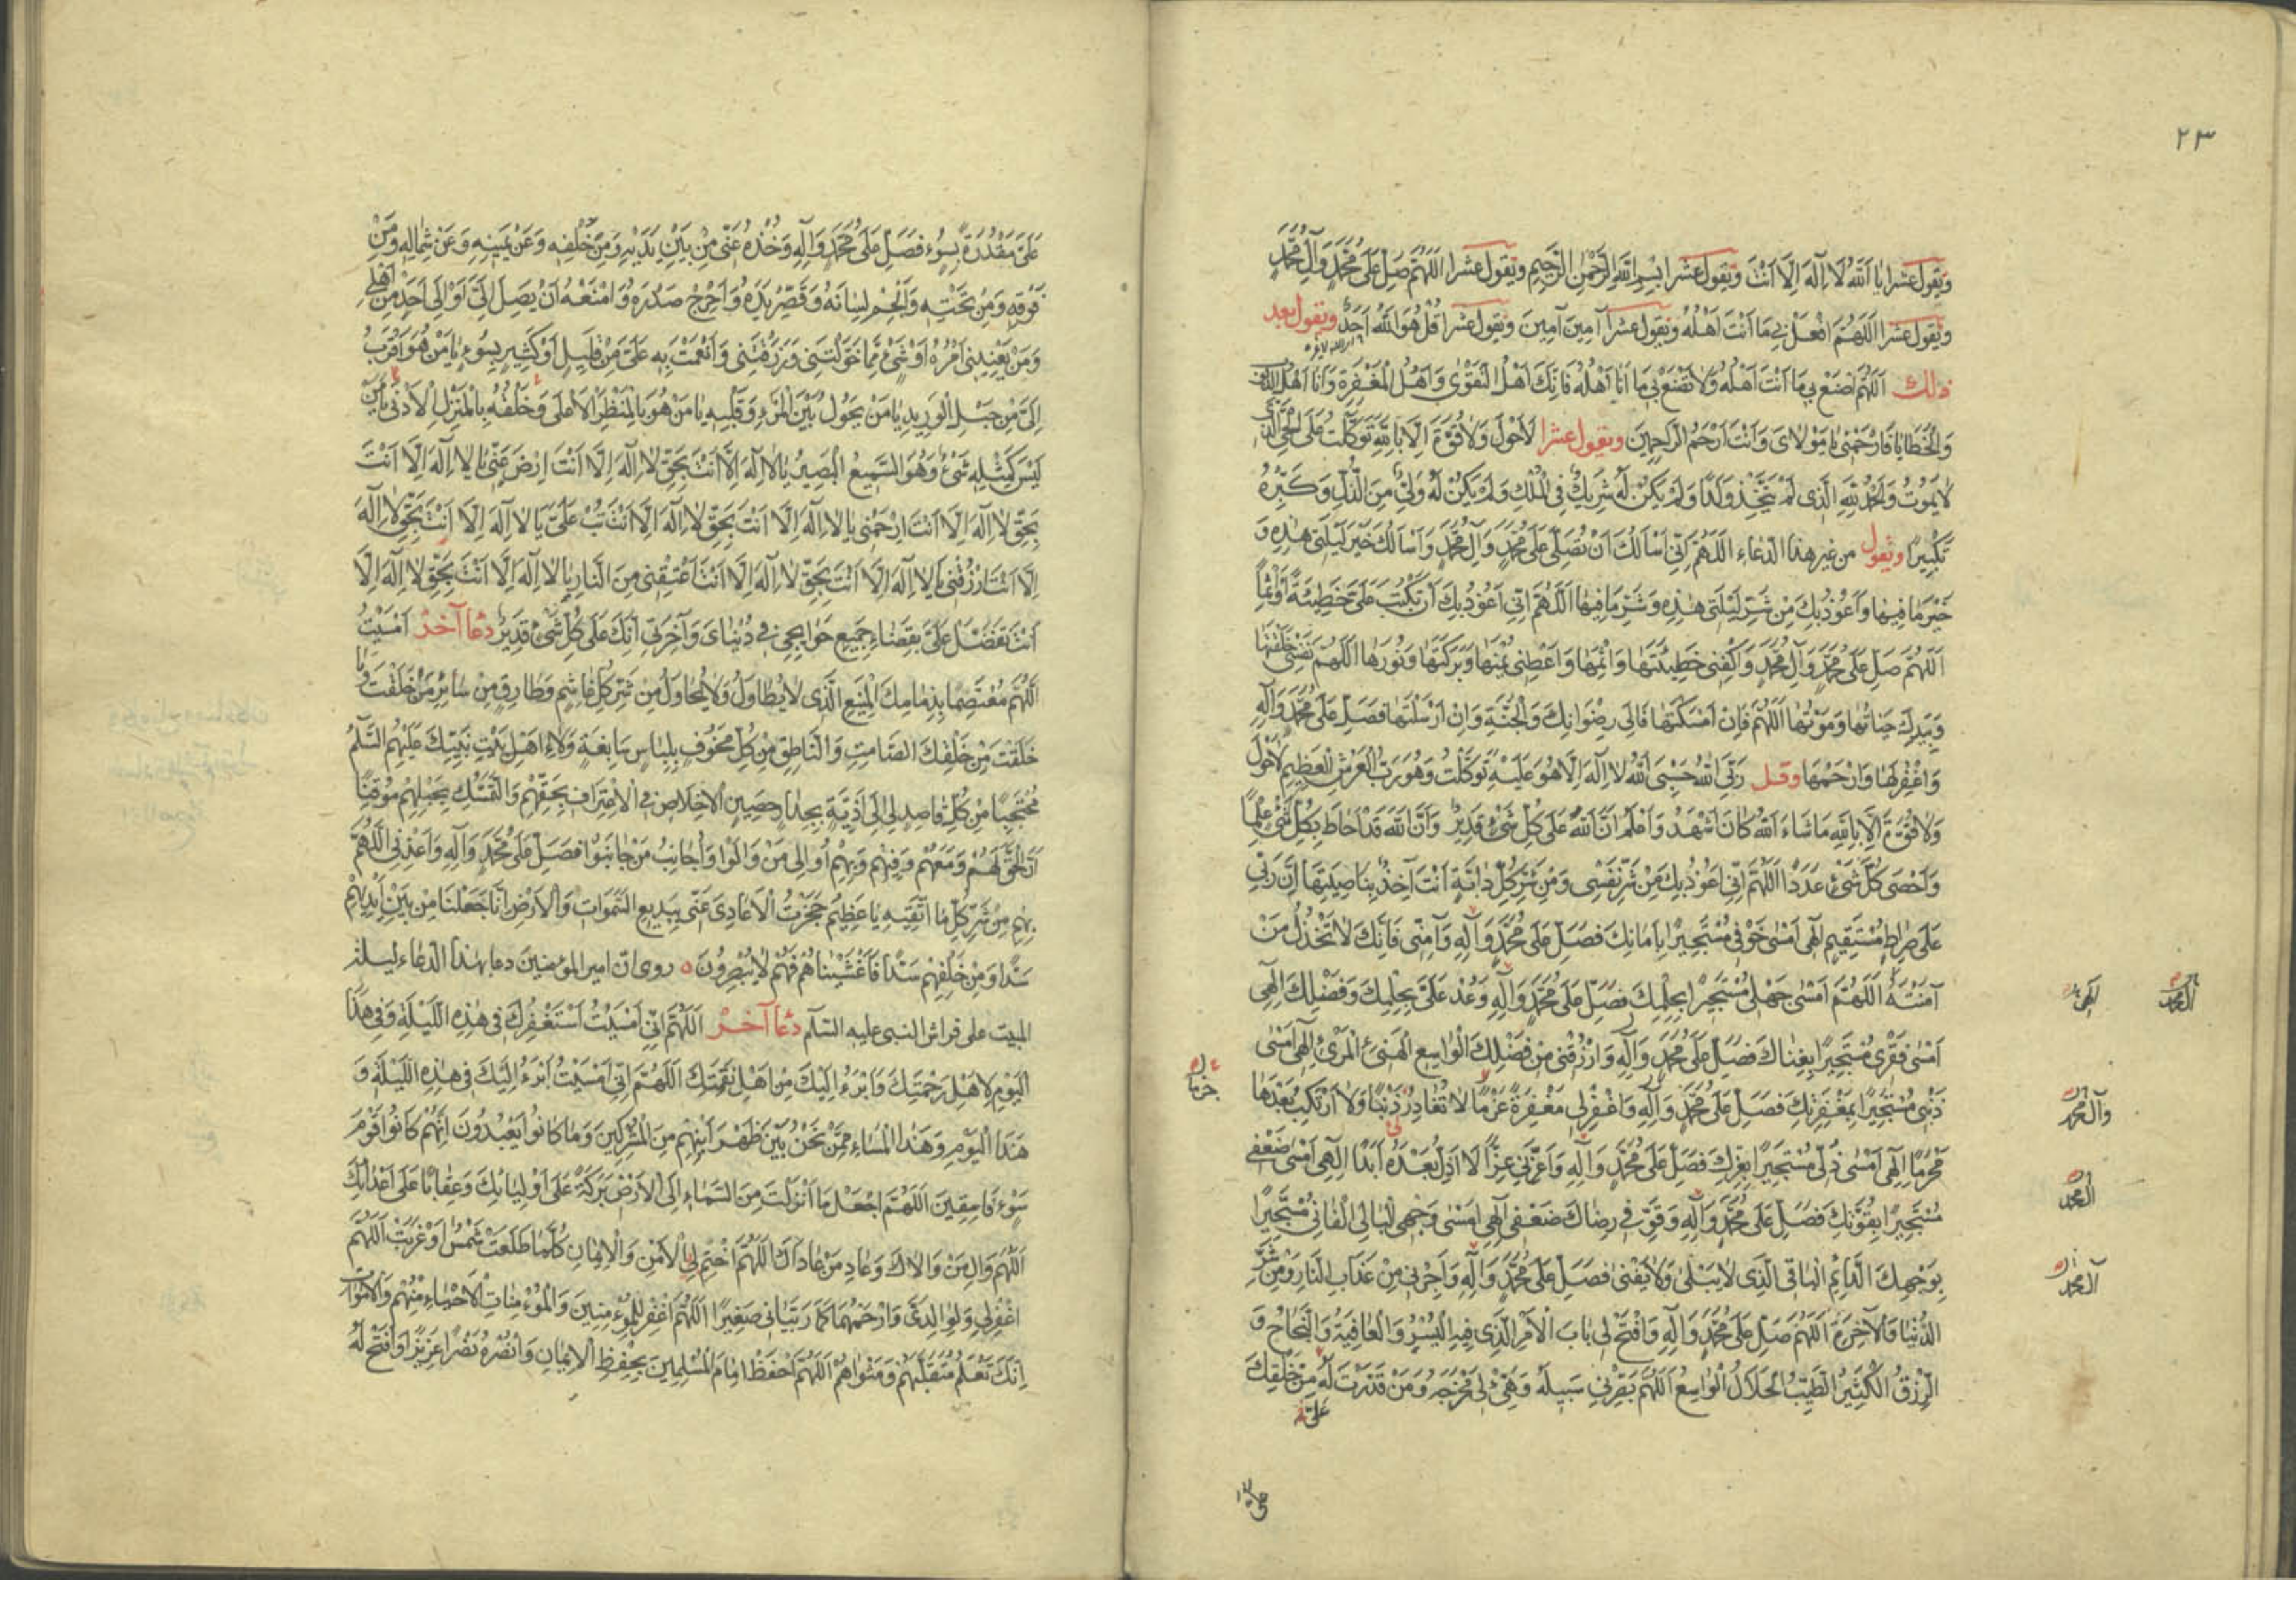 ٢٣
وَيَقُولُ عَشْرًا يَا اَللّٰهُ لَا اِلٰهَ اِلَّا اَنْتَ وَيَقُولُ عَشْرًا بِسْمِ اللّٰهِ الرَّحْمٰنِ الرَّحِيمِ وَيَقُولُ عَشْرًا اَللّٰهُمَّ صَلِّ عَلٰى مُحَمَّدٍ وَآلِ مُحَمَّدٍ
وَيَقُولُ عَشْرًا اَللّٰهُمَّ افْعَلْ بِي مَا اَنْتَ اَهْلُهُ وَيَقُولُ عَشْرًا آمِينَ آمِينَ وَيَقُولُ عَشْرًا قُلْ هُوَ اللّٰهُ اَحَدٌ وَيَقُولُ بَعْدَ
ذٰلِكَ اَللّٰهُمَّ اصْنَعْ بِي مَا اَنْتَ اَهْلُهُ وَلَا تَصْنَعْ بِي مَا اَنَا اَهْلُهُ فَاِنَّكَ اَهْلُ التَّقْوٰى وَاَهْلُ الْمَغْفِرَةِ وَاَنَا اَهْلُ الذُّنُوبِ
وَالْخَطَايَا فَارْحَمْنِي يَا مَوْلَايَ وَاَنْتَ اَرْحَمُ الرَّاحِمِينَ وَيَقُولُ عَشْرًا لَا حَوْلَ وَلَا قُوَّةَ اِلَّا بِاللّٰهِ تَوَكَّلْتُ عَلَى الْحَيِّ الَّذِي
لَا يَمُوتُ وَالْحَمْدُ لِلّٰهِ الَّذِي لَمْ يَتَّخِذْ وَلَدًا وَلَمْ يَكُنْ لَهُ شَرِيكٌ فِي الْمُلْكِ وَلَمْ يَكُنْ لَهُ وَلِيٌّ مِنَ الذُّلِّ وَكَبِّرْهُ
تَكْبِيرًا وَيَقُولُ مِنْ غَيْرِ هٰذَا الدُّعَاءِ اَللّٰهُمَّ اِنِّي اَسْاَلُكَ اَنْ تُصَلِّيَ عَلٰى مُحَمَّدٍ وَآلِ مُحَمَّدٍ وَاَسْاَلُكَ خَيْرَ لَيْلَتِي هٰذِهِ وَ
خَيْرَ مَا فِيهَا وَاَعُوذُ بِكَ مِنْ شَرِّ لَيْلَتِي هٰذِهِ وَشَرِّ مَا فِيهَا اَللّٰهُمَّ اِنِّي اَعُوذُ بِكَ اَنْ تَكْتُبَ عَلَيَّ خَطِيئَةً اَوْ اِثْمًا
اَللّٰهُمَّ صَلِّ عَلٰى مُحَمَّدٍ وَآلِ مُحَمَّدٍ وَاكْفِنِي خَطِيئَتَهَا وَاِثْمَهَا وَاَعْطِنِي يُمْنَهَا وَبَرَكَتَهَا وَنُورَهَا اَللّٰهُمَّ نَفْسِي خَلَقْتَهَا
وَبِيَدِكَ حَيَاتُهَا وَمَوْتُهَا اَللّٰهُمَّ فَاِنْ اَمْسَكْتَهَا فَاِلٰى رِضْوَانِكَ وَالْجَنَّةِ وَاِنْ اَرْسَلْتَهَا فَصَلِّ عَلٰى مُحَمَّدٍ وَآلِهِ
وَاغْفِرْ لَهَا وَارْحَمْهَا وَقُلْ رَبِّيَ اللّٰهُ حَسْبِيَ اللّٰهُ لَا اِلٰهَ اِلَّا هُوَ عَلَيْهِ تَوَكَّلْتُ وَهُوَ رَبُّ الْعَرْشِ الْعَظِيمِ لَا حَوْلَ
وَلَا قُوَّةَ اِلَّا بِاللّٰهِ مَا شَاءَ اللّٰهُ كَانَ اَشْهَدُ وَاَعْلَمُ اَنَّ اللّٰهَ عَلٰى كُلِّ شَيْءٍ قَدِيرٌ وَاَنَّ اللّٰهَ قَدْ اَحَاطَ بِكُلِّ شَيْءٍ عِلْمًا
وَاَحْصٰى كُلَّ شَيْءٍ عَدَدًا اَللّٰهُمَّ اِنِّي اَعُوذُ بِكَ مِنْ شَرِّ نَفْسِي وَمِنْ شَرِّ كُلِّ دَابَّةٍ اَنْتَ آخِذٌ بِنَاصِيَتِهَا اِنَّ رَبِّي
عَلٰى صِرَاطٍ مُسْتَقِيمٍ اِلٰهِي اَمْسٰى خَوْفِي مُسْتَجِيرًا بِاَمَانِكَ فَصَلِّ عَلٰى مُحَمَّدٍ وَآلِهِ وَآمِنِّي فَاِنَّكَ لَا تَخْذُلُ مَنْ
آمَنْتَهُ اَللّٰهُمَّ اَمْسٰى جَهْلِي مُسْتَجِيرًا بِحِلْمِكَ فَصَلِّ عَلٰى مُحَمَّدٍ وَآلِهِ وَعُدْ عَلَيَّ بِحِلْمِكَ وَفَضْلِكَ اِلٰهِي
اَمْسٰى فَقْرِي مُسْتَجِيرًا بِغِنَاكَ فَصَلِّ عَلٰى مُحَمَّدٍ وَآلِهِ وَارْزُقْنِي مِنْ فَضْلِكَ الْوَاسِعِ الْهَنِيءِ الْمَرِيءِ اِلٰهِي اَمْسٰى
ذَنْبِي مُسْتَجِيرًا بِمَغْفِرَتِكَ فَصَلِّ عَلٰى مُحَمَّدٍ وَآلِهِ وَاغْفِرْ لِي مَغْفِرَةً عَزْمًا لَا تُغَادِرُ ذَنْبًا وَلَا اَرْتَكِبُ بَعْدَهَا
مَحْرَمًا اِلٰهِي اَمْسٰى ذُلِّي مُسْتَجِيرًا بِعِزِّكَ فَصَلِّ عَلٰى مُحَمَّدٍ وَآلِهِ وَاَعِزَّنِي عِزًّا لَا اَذِلُّ بَعْدَهُ اَبَدًا اِلٰهِي اَمْسٰى ضَعْفِي
مُسْتَجِيرًا بِقُوَّتِكَ فَصَلِّ عَلٰى مُحَمَّدٍ وَآلِهِ وَقَوِّ فِي رِضَاكَ ضَعْفِي اِلٰهِي اَمْسٰى وَجْهِي الْبَالِي الْفَانِي مُسْتَجِيرًا
بِوَجْهِكَ الدَّائِمِ الْبَاقِي الَّذِي لَا يَبْلٰى وَلَا يَفْنٰى فَصَلِّ عَلٰى مُحَمَّدٍ وَآلِهِ وَاَجِرْنِي مِنْ عَذَابِ النَّارِ وَمِنْ شَرِّ
الدُّنْيَا وَالْآخِرَةِ اَللّٰهُمَّ صَلِّ عَلٰى مُحَمَّدٍ وَآلِهِ وَافْتَحْ لِي بَابَ الْاَمْرِ الَّذِي فِيهِ الْيُسْرُ وَالْعَافِيَةُ وَالنَّجَاحُ وَ
الرِّزْقُ الْكَثِيرُ الطَّيِّبُ الْحَلَالُ الْوَاسِعُ اَللّٰهُمَّ بَصِّرْنِي سَبِيلَهُ وَهَيِّئْ لِي مَخْرَجَهُ وَمَنْ قَدَّرْتَ لَهُ مِنْ خَلْقِكَ
عَلَيَّ
آل محمد
الهي
وآل محمد
آل محمد
آل محمد
عَلَيَّ مَقْدُرَةً بِسُوءٍ فَصَلِّ عَلٰى مُحَمَّدٍ وَآلِهِ وَخُذْهُ عَنِّي مِنْ بَيْنِ يَدَيْهِ وَمِنْ خَلْفِهِ وَعَنْ يَمِينِهِ وَعَنْ شِمَالِهِ وَمِنْ
فَوْقِهِ وَمِنْ تَحْتِهِ وَاَلْجِمْ لِسَانَهُ وَقَصِّرْ يَدَهُ وَاَحْرِجْ صَدْرَهُ وَامْنَعْهُ اَنْ يَصِلَ اِلَيَّ اَوْ اِلٰى اَحَدٍ مِنْ اَهْلِي
وَمَنْ يَعْنِينِي اَمْرُهُ اَوْ شَيْءٍ مِمَّا خَوَّلْتَنِي وَرَزَقْتَنِي وَاَنْعَمْتَ بِهِ عَلَيَّ مِنْ قَلِيلٍ اَوْ كَثِيرٍ بِسُوءٍ يَا مَنْ هُوَ اَقْرَبُ
اِلَيَّ مِنْ حَبْلِ الْوَرِيدِ يَا مَنْ يَحُولُ بَيْنَ الْمَرْءِ وَقَلْبِهِ يَا مَنْ هُوَ بِالْمَنْظَرِ الْاَعْلٰى وَخَلْقُهُ بِالْمَنْزِلِ الْاَدْنٰى يَا مَنْ
لَيْسَ كَمِثْلِهِ شَيْءٌ وَهُوَ السَّمِيعُ الْبَصِيرُ يَا لَا اِلٰهَ اِلَّا اَنْتَ بِحَقِّ لَا اِلٰهَ اِلَّا اَنْتَ اِرْضَ عَنِّي يَا لَا اِلٰهَ اِلَّا اَنْتَ
بِحَقِّ لَا اِلٰهَ اِلَّا اَنْتَ ارْحَمْنِي يَا لَا اِلٰهَ اِلَّا اَنْتَ بِحَقِّ لَا اِلٰهَ اِلَّا اَنْتَ تُبْ عَلَيَّ يَا لَا اِلٰهَ اِلَّا اَنْتَ بِحَقِّ لَا اِلٰهَ
اِلَّا اَنْتَ ارْزُقْنِي يَا لَا اِلٰهَ اِلَّا اَنْتَ بِحَقِّ لَا اِلٰهَ اِلَّا اَنْتَ اَعْتِقْنِي مِنَ النَّارِ يَا لَا اِلٰهَ اِلَّا اَنْتَ بِحَقِّ لَا اِلٰهَ اِلَّا
اَنْتَ تَفَضَّلْ عَلَيَّ بِقَضَاءِ جَمِيعِ حَوَائِجِي فِي دُنْيَايَ وَآخِرَتِي اِنَّكَ عَلٰى كُلِّ شَيْءٍ قَدِيرٌ دُعَا آخَرُ اَمْسَيْتُ
اَللّٰهُمَّ مُعْتَصِمًا بِذِمَامِكَ الْمَنِيعِ الَّذِي لَا يُطَاوَلُ وَلَا يُحَاوَلُ مِنْ شَرِّ كُلِّ غَاشِمٍ وَطَارِقٍ مِنْ سَائِرِ مَنْ خَلَقْتَ وَمَا
خَلَقْتَ مِنْ خَلْقِكَ الصَّامِتِ وَالنَّاطِقِ مِنْ كُلِّ مَخُوفٍ بِلِبَاسٍ سَابِغَةٍ وَلَاءِ اَهْلِ بَيْتِ نَبِيِّكَ عَلَيْهِمُ السَّلَمُ
مُحْتَجِبًا مِنْ كُلِّ قَاصِدٍ لِي اِلٰى اَذِيَّةٍ بِجِدَارٍ حَصِينٍ الْاِخْلَاصِ فِي الْاِعْتِرَافِ بِحَقِّهِمْ وَالتَّمَسُّكِ بِحَبْلِهِمْ مُوقِنًا
اَنَّ الْحَقَّ لَهُمْ وَمَعَهُمْ وَفِيهِمْ وَبِهِمْ اُوَالِي مَنْ وَالَوْا وَاُجَانِبُ مَنْ جَانَبُوا فَصَلِّ عَلٰى مُحَمَّدٍ وَآلِهِ وَاَعِذْنِي اَللّٰهُمَّ
بِهِمْ مِنْ شَرِّ كُلِّ مَا اَتَّقِيهِ يَا عَظِيمُ حَجَزْتُ الْاَعَادِيَ عَنِّي بِبَدِيعِ السَّمٰوَاتِ وَالْاَرْضِ اِنَّا جَعَلْنَا مِنْ بَيْنِ اَيْدِيهِمْ
سَدًّا وَمِنْ خَلْفِهِمْ سَدًّا فَاَغْشَيْنَاهُمْ فَهُمْ لَا يُبْصِرُونَ ه روى انّ امير المؤمنين دعا بهذا الدعاء ليلة
المبيت على فراش النبي عليه السلام دُعَا آخَرُ اَللّٰهُمَّ اِنِّي اَمْسَيْتُ اَسْتَغْفِرُكَ فِي هٰذِهِ اللَّيْلَةِ وَفِي هٰذَا
الْيَوْمِ لِاَهْلِ رَحْمَتِكَ وَاَبْرَءُ اِلَيْكَ مِنْ اَهْلِ نَقِمَتِكَ اَللّٰهُمَّ اِنِّي اَمْسَيْتُ اَبْرَءُ اِلَيْكَ فِي هٰذِهِ اللَّيْلَةِ وَ
هٰذَا الْيَوْمِ وَهٰذَا الْمَسَاءِ مِمَّنْ نَحْنُ بَيْنَ ظَهْرَانَيْهِمْ مِنَ الْمُشْرِكِينَ وَمَا كَانُوا يَعْبُدُونَ اِنَّهُمْ كَانُوا قَوْمَ
سَوْءٍ فَاسِقِينَ اَللّٰهُمَّ اجْعَلْ مَا اَنْزَلْتَ مِنَ السَّمَاءِ اِلَى الْاَرْضِ بَرَكَةً عَلٰى اَوْلِيَائِكَ وَعِقَابًا عَلٰى اَعْدَائِكَ
اَللّٰهُمَّ وَالِ مَنْ وَالَاكَ وَعَادِ مَنْ عَادَاكَ اَللّٰهُمَّ اخْتِمْ لِي بِالْاَمْنِ وَالْاِيمَانِ كُلَّمَا طَلَعَتْ شَمْسٌ اَوْ غَرَبَتْ اَللّٰهُمَّ
اغْفِرْ لِي وَلِوَالِدَيَّ وَارْحَمْهُمَا كَمَا رَبَّيَانِي صَغِيرًا اَللّٰهُمَّ اغْفِرْ لِلْمُؤْمِنِينَ وَالْمُؤْمِنَاتِ الْاَحْيَاءِ مِنْهُمْ وَالْاَمْوَاتِ
اِنَّكَ تَعْلَمُ مُتَقَلَّبَهُمْ وَمَثْوَاهُمْ اَللّٰهُمَّ احْفَظْ اِمَامَ الْمُسْلِمِينَ بِحِفْظِ الْاِيمَانِ وَانْصُرْهُ نَصْرًا عَزِيزًا وَافْتَحْ لَهُ